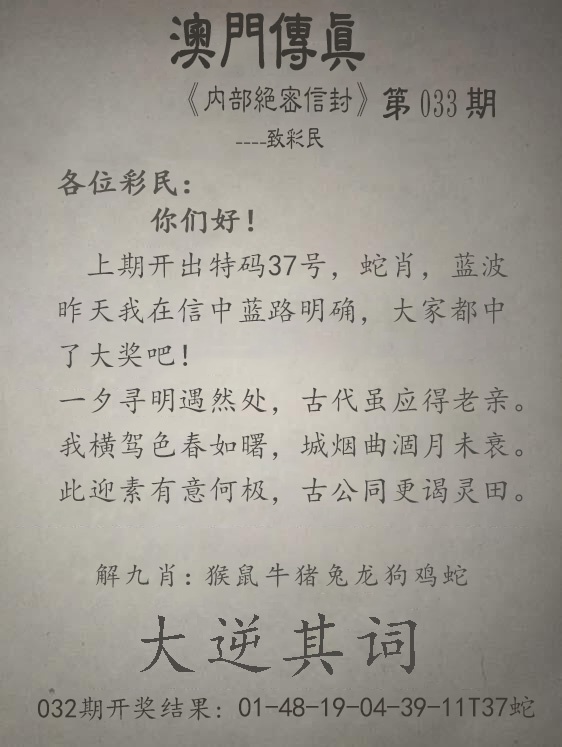 澳門傳眞
《内部絕密信封》第033期
----致彩民
各位彩民：
你们好！
上期开出特码37号，蛇肖，蓝波
昨天我在信中蓝路明确，大家都中
了大奖吧！
一夕寻明遇然处，古代虽应得老亲。
我横驾色春如曙，城烟曲涸月未衰。
此迎素有意何极，古公同更谒灵田。
解九肖：猴鼠牛猪兔龙狗鸡蛇
大逆其词
032期开奖结果：01-48-19-04-39-11T37蛇